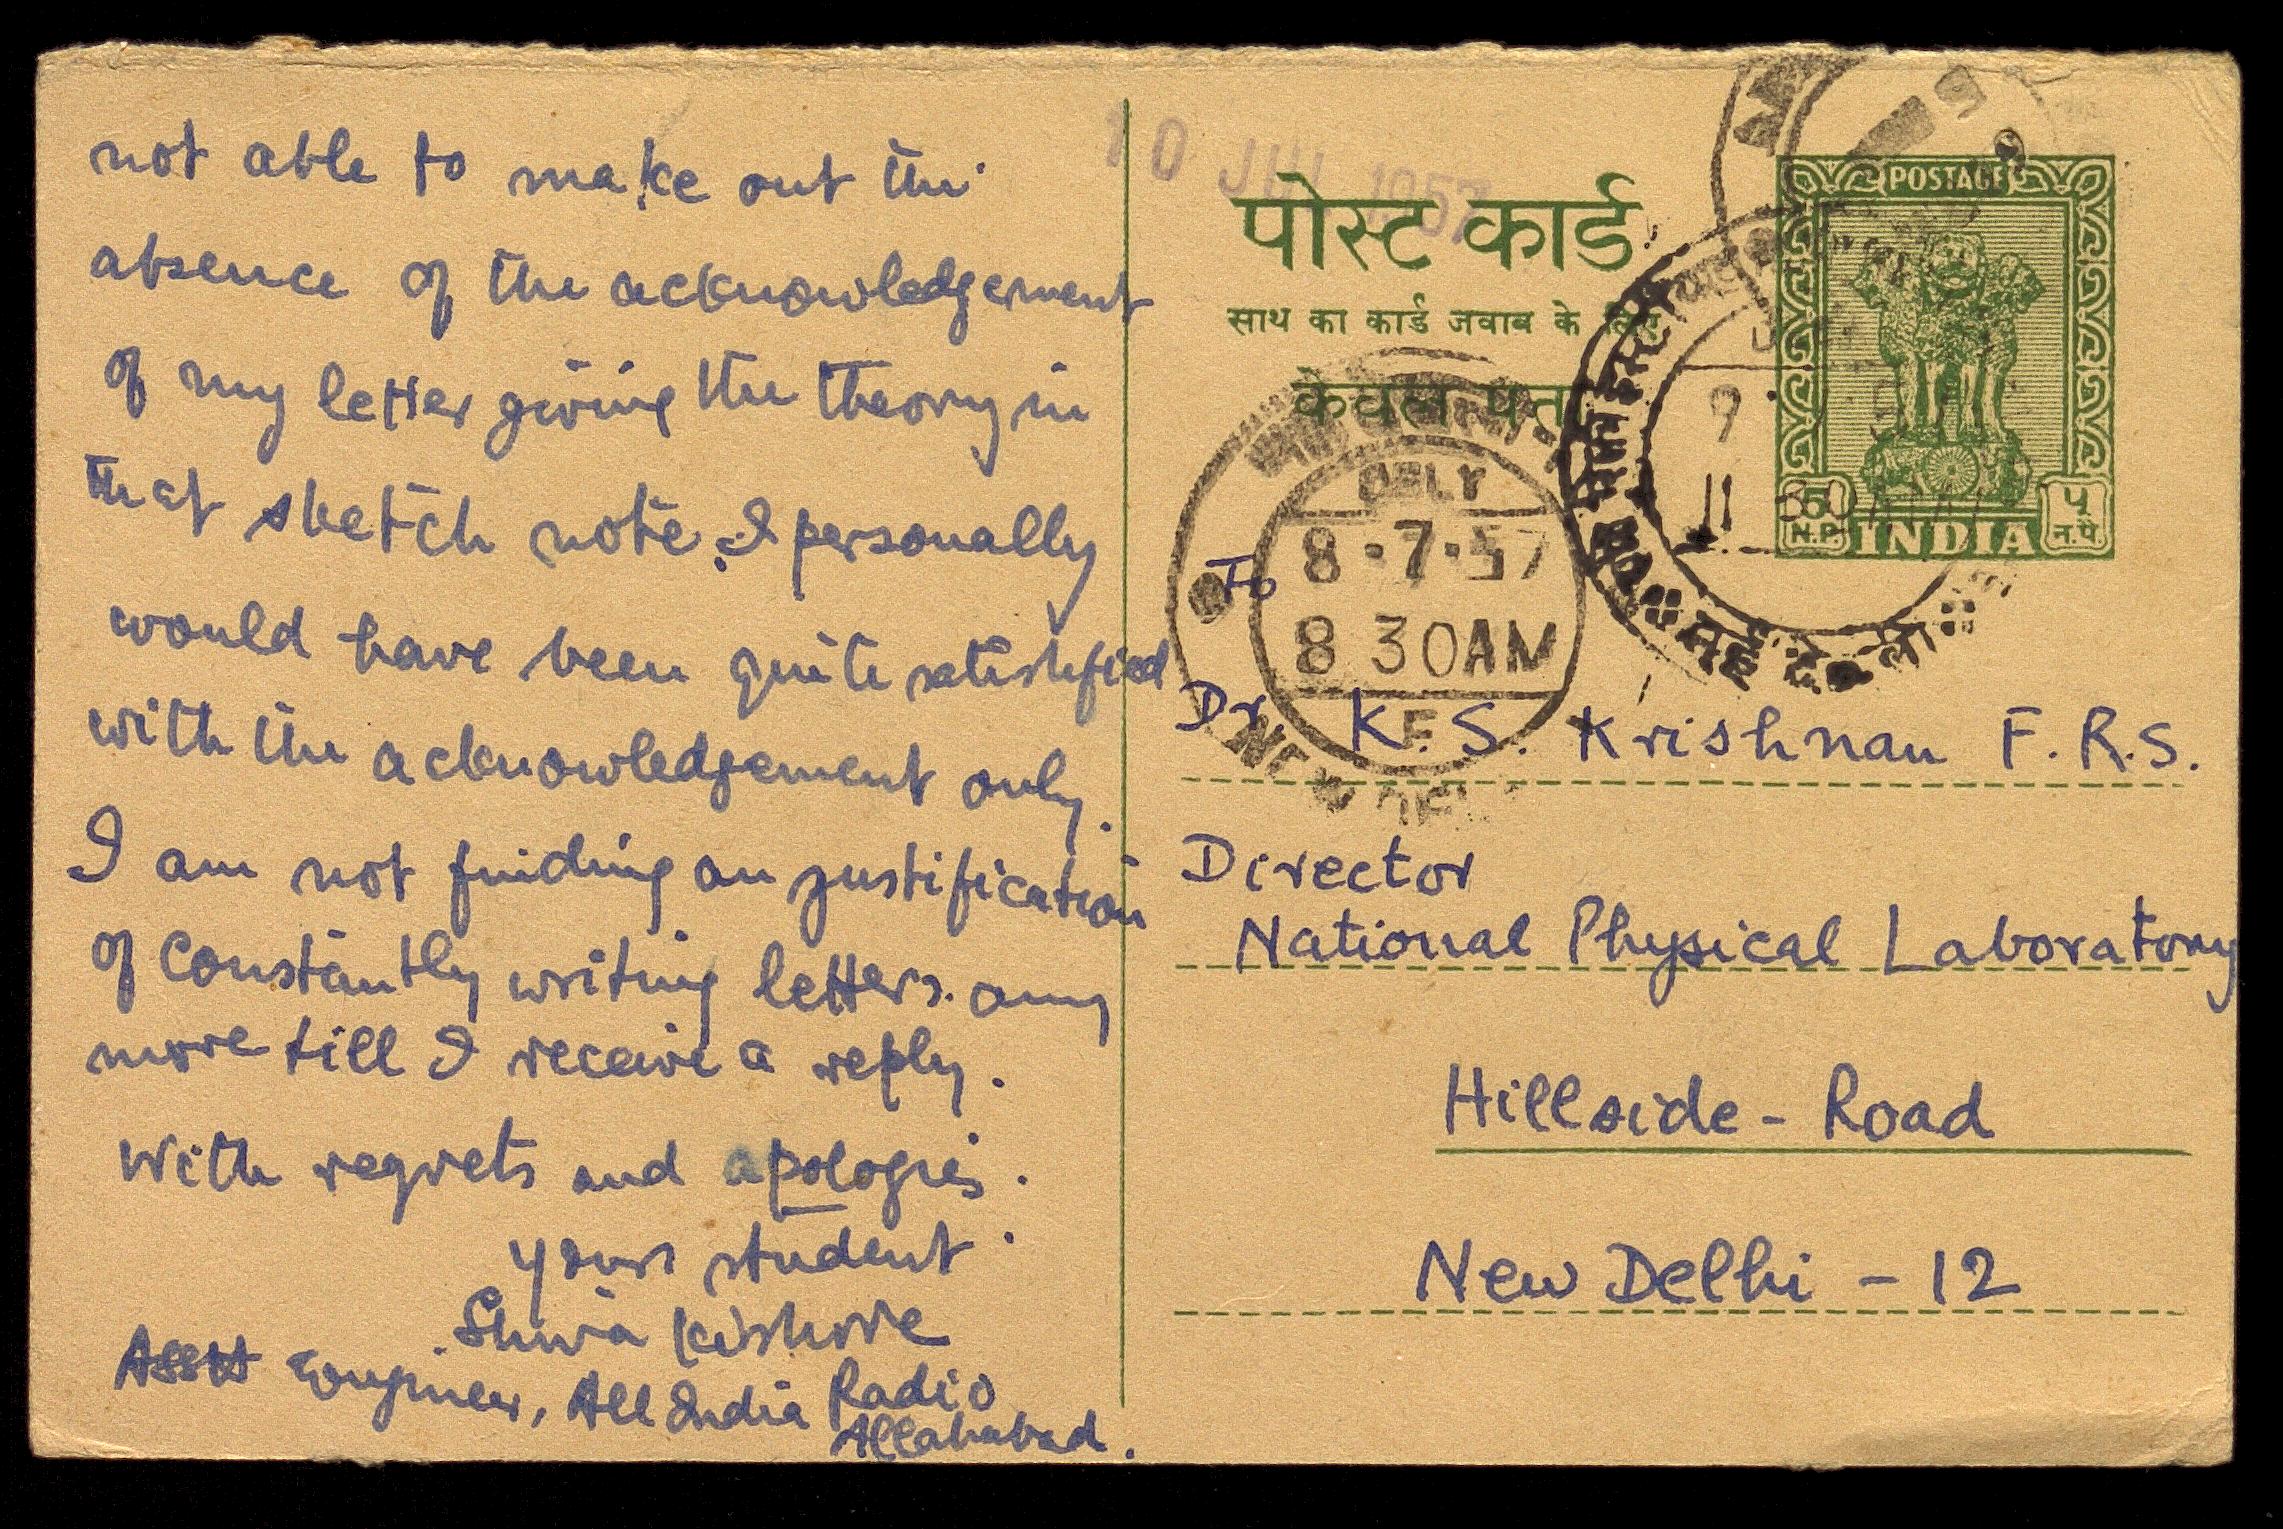 not able to make out the
absence of the acknowledgement
of my letter giving the theory in
that sketch note. I personally
would have been quite satisfied
with the acknowledgement only.
I am not finding an justification
of constantly writing letters any
more till I receive a reply.
With regrets and apologies.
yours student
Shiva Kishore
Asstt Engineer, All India Radio
Allahabad.
10 JUL 1957
पोस्ट कार्ड
साथ का कार्ड जवाब के लिए
केवल पता
POSTAGE
5 N.P.
INDIA
५ न.पै.
DELY
8-7-57
8 30AM
F
NEW DEL
9
11 30
To
Dr. K. S. Krishnan F.R.S.
Director
National Physical Laboratory
Hillside - Road
New Delhi - 12